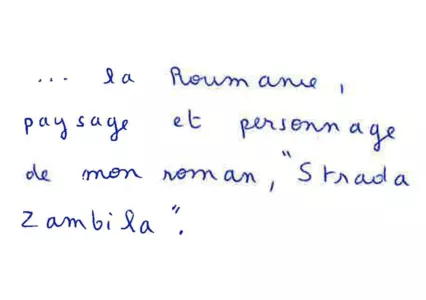 ... la Roumanie,
paysage et personnage
de mon roman, "Strada
Zambila".